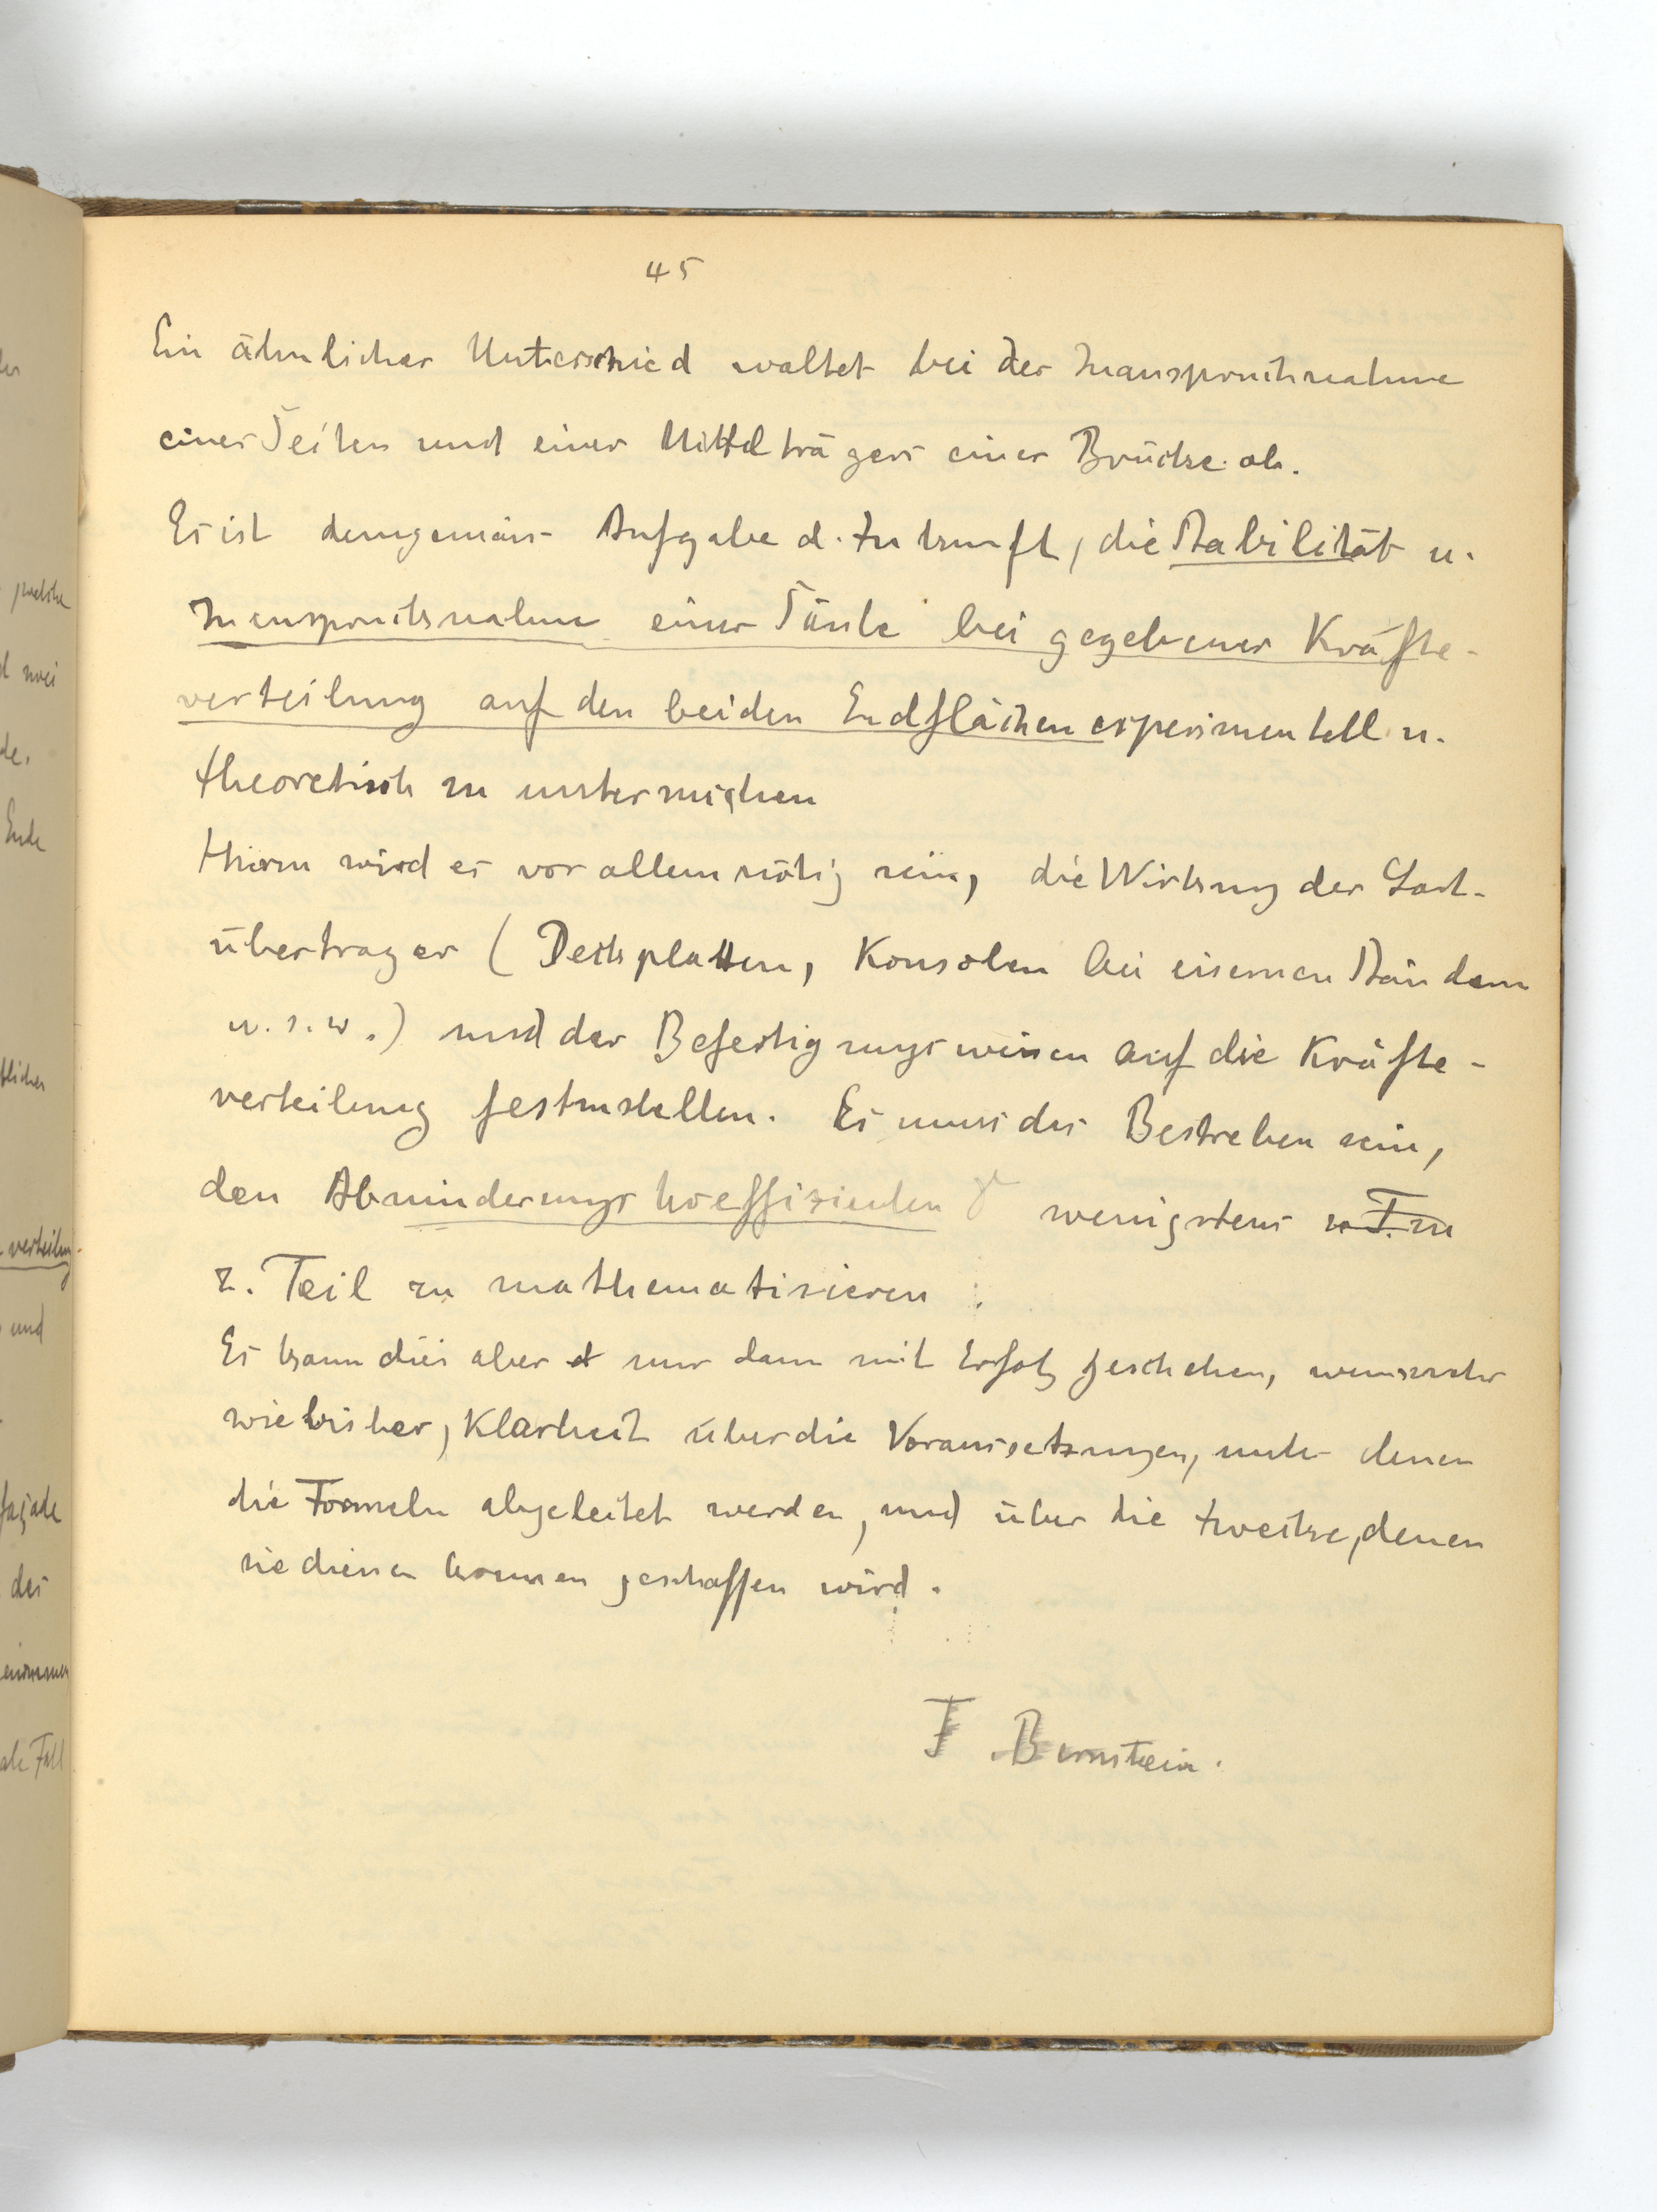 45
Ein ähnlicher Unterschied waltet bei der Inanspruchnahme
eines Seiten und eines Mittelträgers einer Brücke ob.
Es ist demgemäss Aufgabe d. Zukunft, die Stabilität u.
Inanspruchsnahme einer Säule bei gegebener Kräfte-
verteilung auf den beiden Endflächen experimentell u.
theoretisch zu untersuchen
Hierzu wird es vor allem nötig sein, die Wirkung der Last-
übertrager (Deckplatten, Konsolen bei eisernen Ständern
u.s.w.) und der Befestigungsweisen auf die Kräfte-
verteilung festzustellen. Es muss das Bestreben sein,
den Abminderungskoeffizienten γ wenigstens
z. Teil zu mathematisieren.
Es kann dies aber nur dann mit Erfolg geschehen, wenn mehr
wie bisher, Klarheit über die Voraussetzungen, unter denen
die Formeln abgeleitet werden, und über die Zwecke, denen
sie dienen können geschaffen wird.
F Bernstein.
welche
Ende
verteilung
und
des
Fall